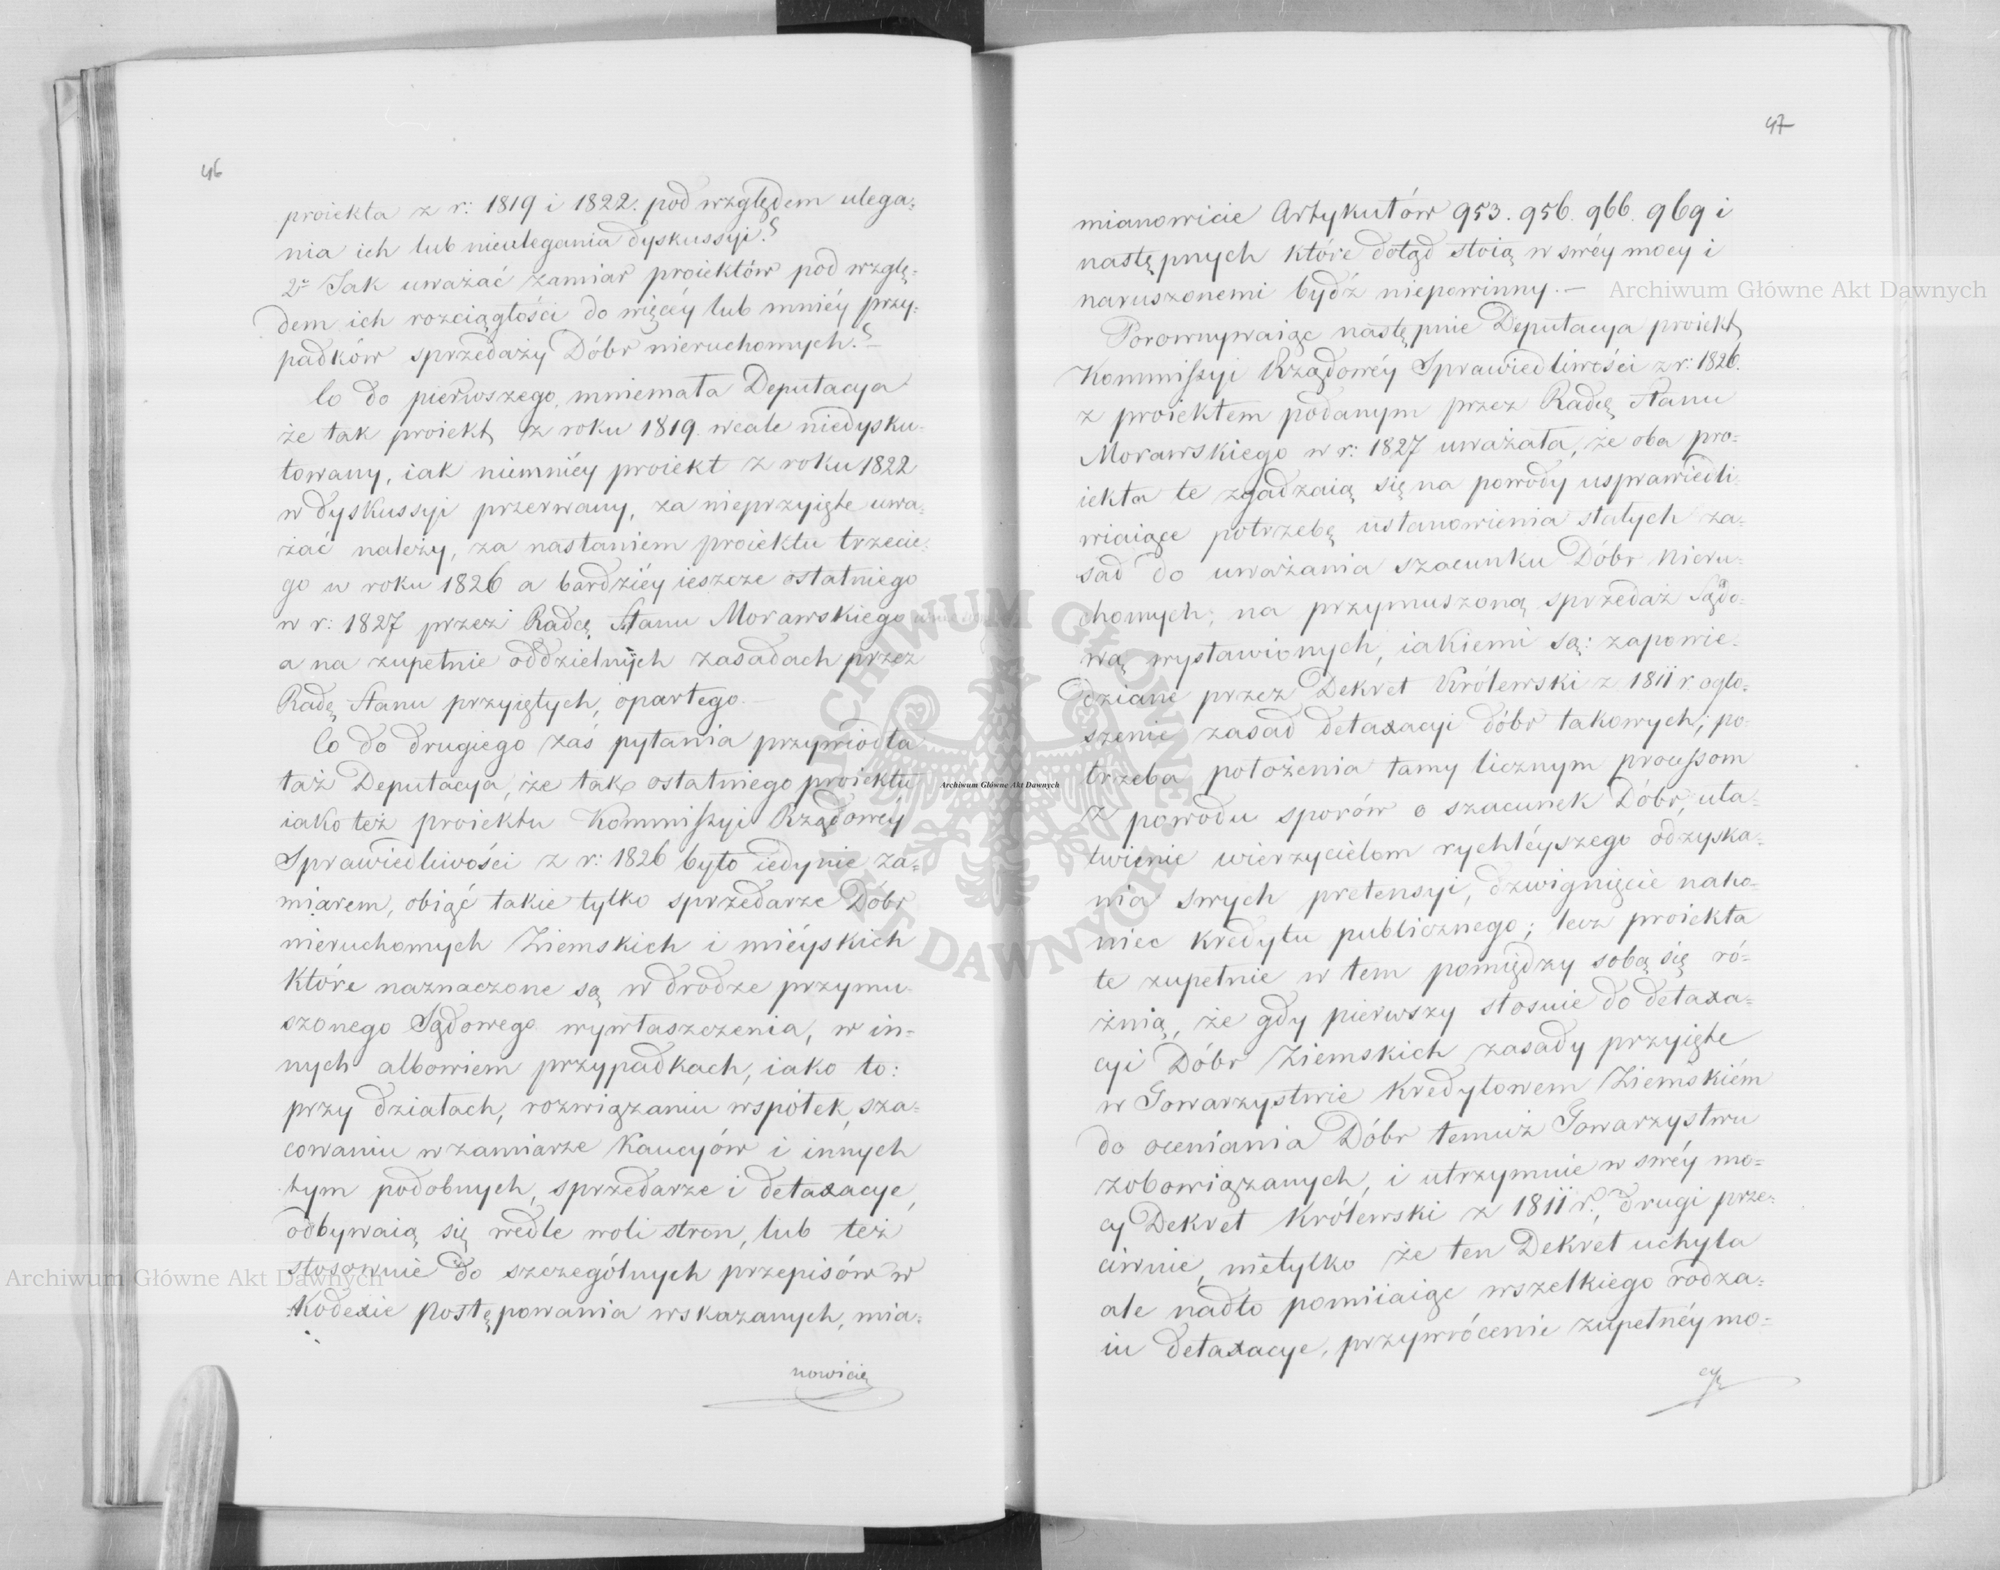 46
proiekta z r: 1819 i 1822. pod względem ulega-
nia ich lub nieulegania dyskussyi?
2e Jak uważać zamiar proiektów pod wzglę-
dem ich rozciągłości do więcéy lub mniéy przy-
padków sprzedaży Dóbr nieruchomych? –
Co do pierwszego, mniemała Deputacya
że tak proiekt z roku 1819. wcale niedysku-
towany, iak niemniéy proiekt z roku 1822
w dyskussyi przerwany, za nieprzyięte uwa-
żać należy, za nastaniem proiektu trzecie-
go w roku 1826 a bardziéy ieszcze ostatniego
w r: 1827 przez Radcę Stanu Morawskiego
a na zupełnie oddzielnych zasadach przez
Radę Stanu przyiętych, opartego –
Co do drugiego zaś pytania przywiodła
taż Deputacya, że tak ostatniego proiektu
iako też proiektu Kommissyi Rządowéy
Sprawiedliwości z r: 1826 było iedynie za-
miarem, obiąć takie tylko sprzedarze Dóbr
nieruchomych Ziemskich i mieyskich
które naznaczone są w drodze przymu-
szonego Sądowego wywłaszczenia, w in-
nych albowiem przypadkach, iako to:
przy działach, rozwiązaniu wspołek, sza-
cowaniu w zamiarze Kaucyów i innych
tym podobnych, sprzedarze i detaxacye,
odbywaią się wedle woli stron, lub też
stosownie do szczególnych przepisów w
Kodexie Postępowania wskazanych, mia-
nowicie
47
mianowicie Artykułów 953. 956. 966. 969 i
następnych które dotąd stoią w swéy mocy i
naruszonemi bydź niepowinny. –
Porownywaiąc następnie Deputacya proiekt
Kommissyi Rządowéy Sprawiedliwości z r: 1826.
z proiektem podanym przez Radcę Stanu
Morawskiego w r: 1827 uważała, że oba pro-
iekta te zgadzaią się na powody usprawiedli-
wiaiące potrzebę ustanowienia stałych za-
sad do uważania szacunku Dóbr Nieru-
chomych; na przymuszoną sprzedaż Sądo-
wą wystawionych, iakiemi są: zapowie-
dziane przez Dekret Królewski z 1811 r. ogło-
szenie zasad detaxacyi dóbr takowych; po-
trzeba położenia tamy licznym processom
z powodu sporów o szacunek Dóbr, uła-
twienie wierzycielom rychléyszego odzyska-
nia swych pretensyi, dzwignięcie nako-
niec kredytu publicznego; lecz proiekta
te zupełnie w tem pomiędzy sobą się ró-
żnią, że gdy pierwszy stosuie do detaxa-
cyi Dóbr Ziemskich zasady przyięte
w Towarzystwie Kredytowem Ziemskiém
do oceniania Dóbr temuż Towarzystwu
zobowiązanych, i utrzymuie w swéy mo-
cy Dekret Królewski z 1811 r., drugi prze-
ciwnie, nietylko że ten Dekret uchyla
ale nadto pomiiaiąc wszelkiego rodza-
iu detaxacye, przywrócenie zupełnéy mo-
cy
Archiwum Główne Akt Dawnych
Archiwum Główne Akt Dawnych
Archiwum Główne Akt Dawnych
ARCHIWUM GŁÓWNE AKT DAWNYCH